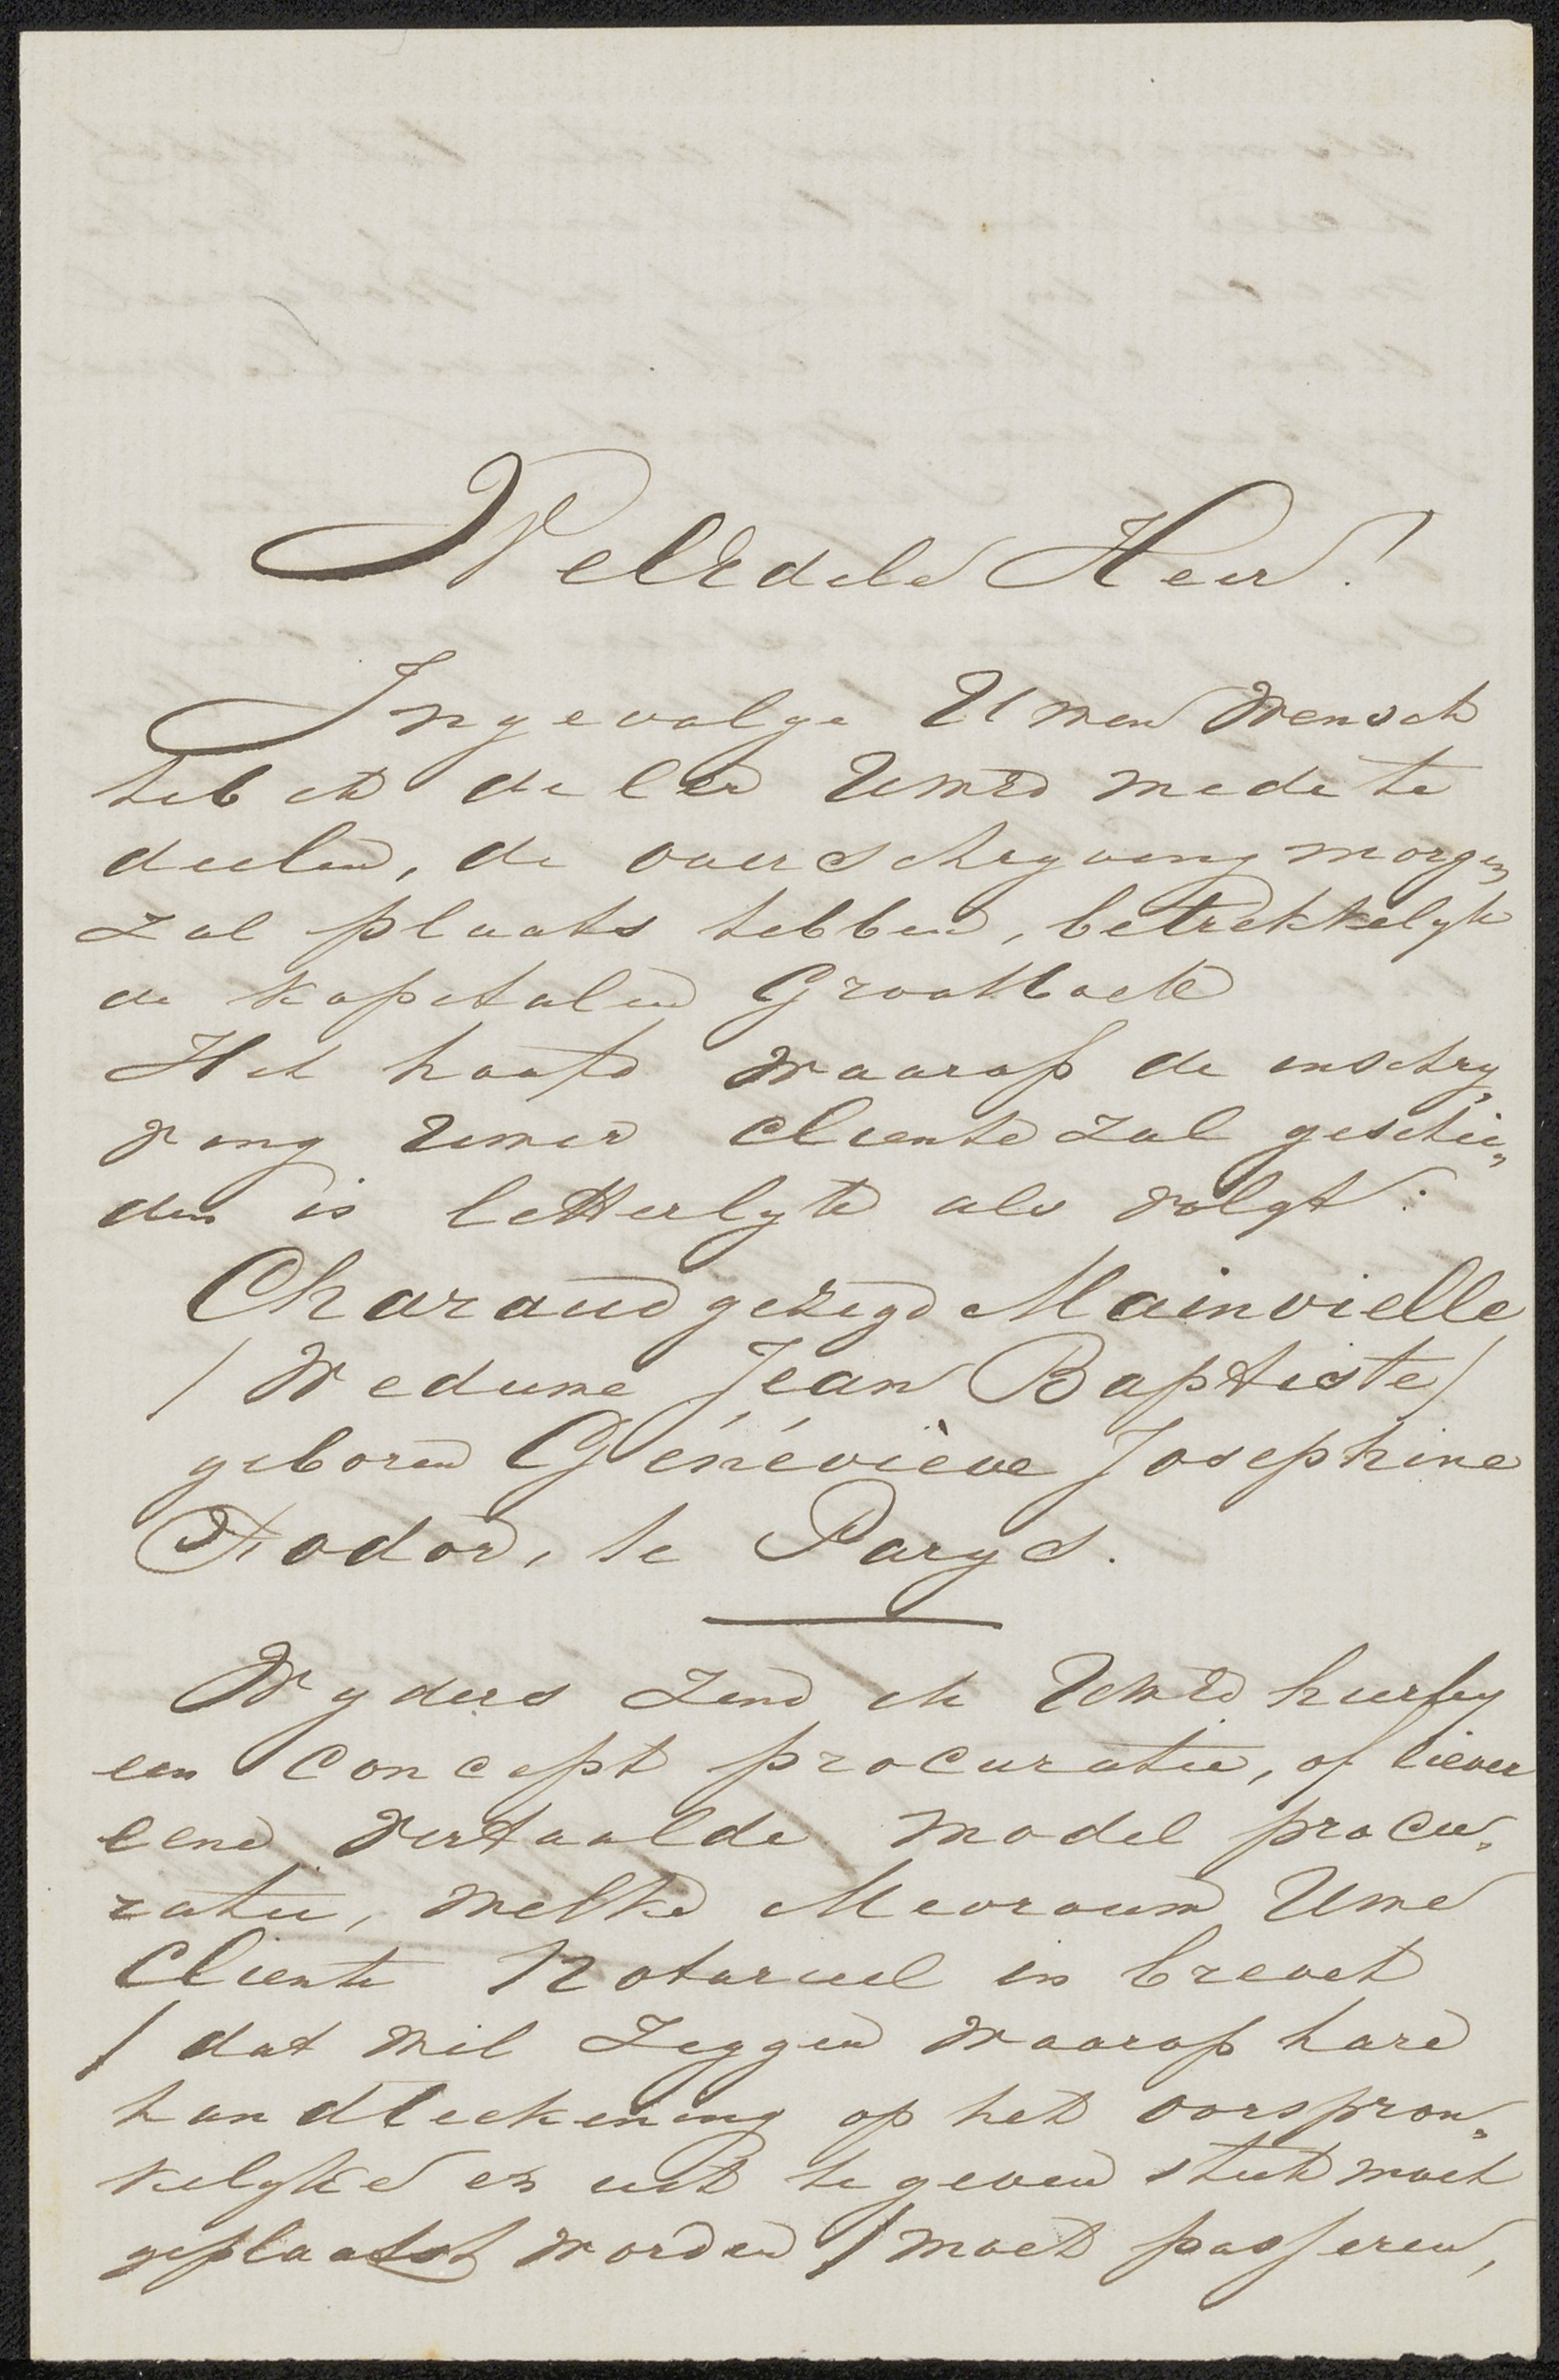 WelEdele Heer!
Ingevolge Uwen Wensch
heb ik de eer UwEd mede te
deelen, de overschryving morgen
zal plaats hebben, betrekkelyk
de Kapitalen Grootboek
Het hoofd waarop de inschry„
ving Uwer Cliente zal geschie„
den is letterlyk als volgt:
Charaud gezegd Mainvielle
/Weduwe Jean Baptiste/
geboren Généviève Josephine
Fodor, te Parys.
Wyders zend ik UwEd hierby
een Concept procuratie, of liever
eene vertaalde model procu„
ratie, welke Mevrouw Uwe
Cliente Notarieel in brevet
/dat wil zeggen waarop hare
handteekening op het oorspron„
kelyke en uit te geven stuk moet
geplaatst worden/ moet passeren,